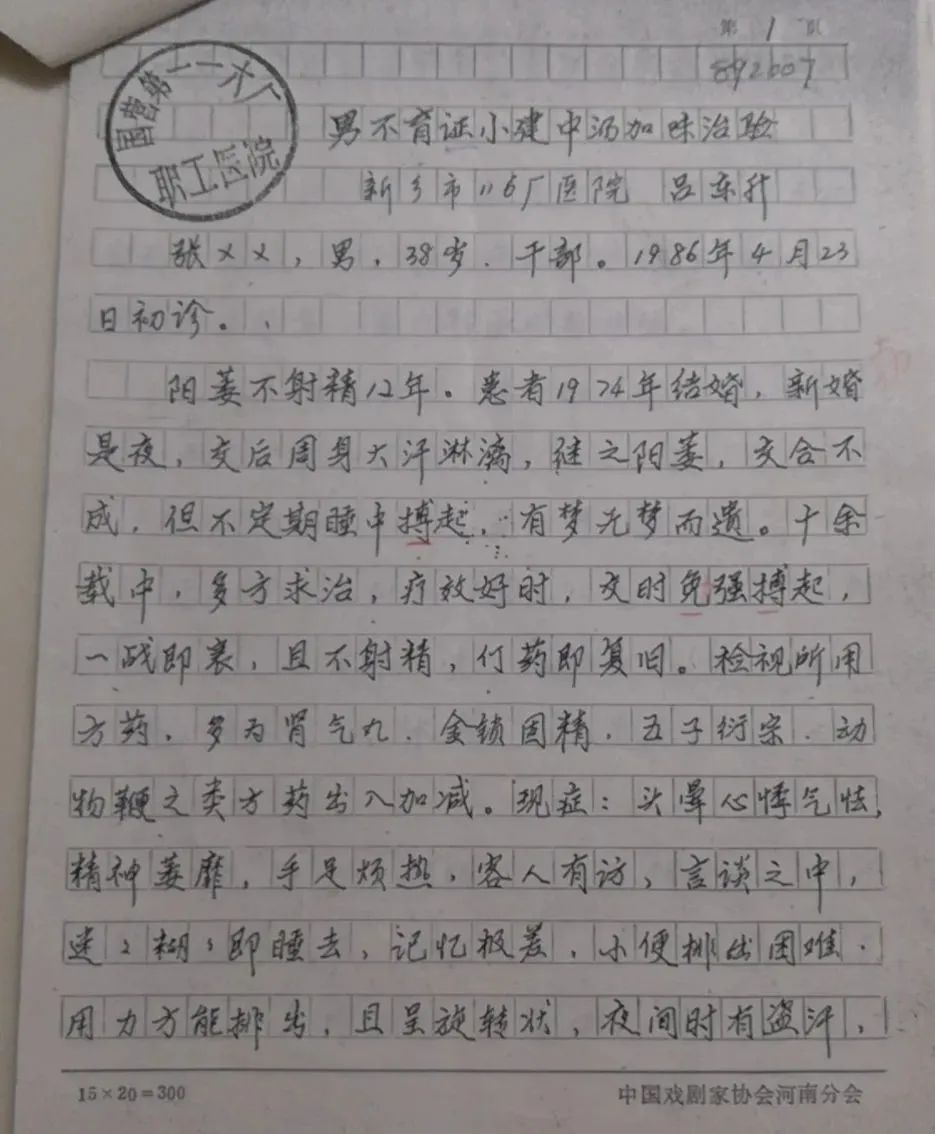 第1页
892607
国营第一一六厂
职工医院
男不育证小建中汤加味治验
新乡市116厂医院 吕东升
张××,男,38岁.干部。1986年4月23
日初诊。
阳萎不射精12年。患者1974年结婚,新婚
是夜,交后周身大汗淋漓,继之阳萎,交合不
成,但不定期睡中搏起,有梦无梦而遗。十余
载中,多方求治,疗效好时,交时免强搏起,
一战即衰,且不射精,仃药即复旧。检视所用
方药,多为肾气九.金锁固精.五子衍宗.动
物鞭之类方药出入加减。现症:头晕心悸气怯,
精神萎靡,手足烦热,客人有访、言谈之中,
迷〻糊〻即睡去,记忆极差,小便排出困难.
用力方能排出,且呈旋转状,夜间时有盗汗,
15×20=300
中国戏剧家协会河南分会